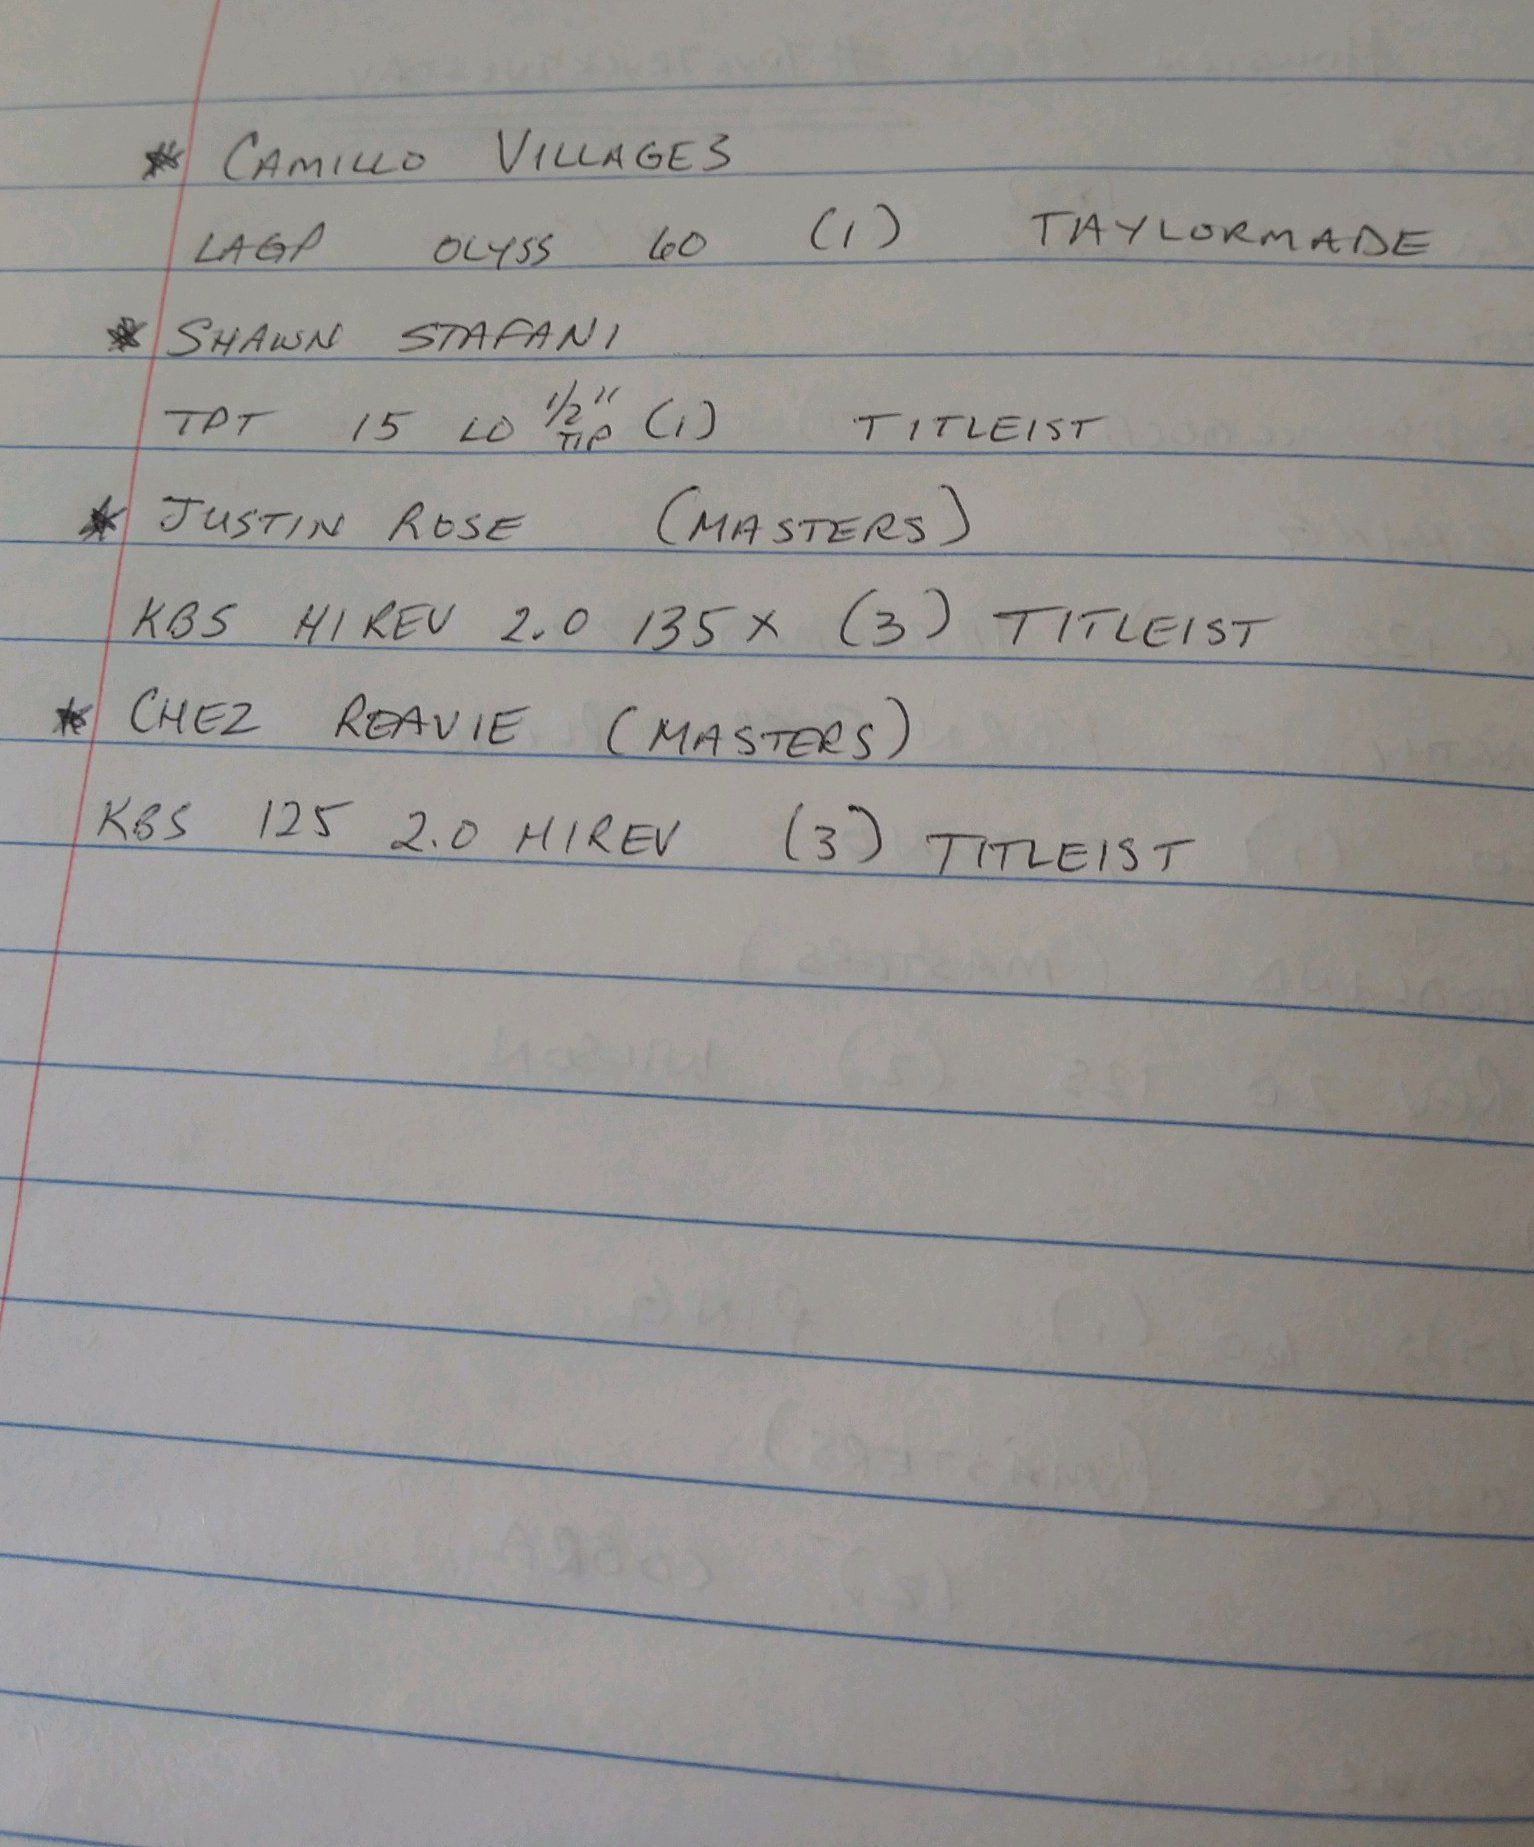 * CAMILLO VILLAGES
LAGP OLYSS 60 (1) TAYLORMADE
* SHAWN STAFANI
TPT 15 LO 1/2" TIP (1) TITLEIST
* JUSTIN ROSE (MASTERS)
KBS HI REV 2.0 135 X (3) TITLEIST
* CHEZ REAVIE (MASTERS)
KBS 125 2.0 HIREV (3) TITLEIST